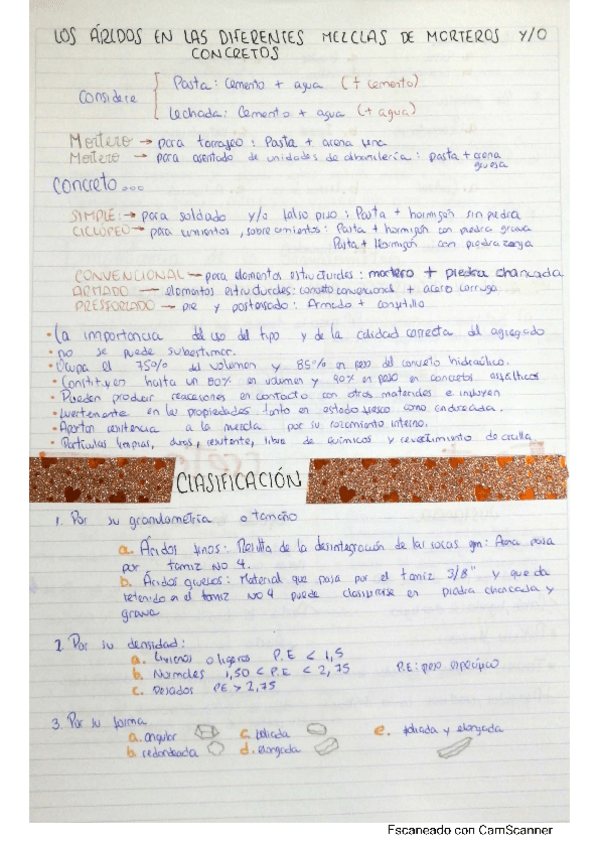 LOS ÁRIDOS EN LAS DIFERENTES MEZCLAS DE MORTEROS Y/O
CONCRETOS
Considere
Pasta: Cemento + agua (+ cemento)
Lechada: Cemento + agua (+ agua)
Mortero → para tarrajeo: Pasta + arena fina
Mortero → para asentado de unidades de albanilería: pasta + arena
gruesa
Concreto...
SIMPLE: → para solado y/o falso piso: Pasta + hormigón sin piedra
CICLOPEO → para cimientos, sobrecimientos: Pasta + hormigón con piedra grava
Pasta + Hormigón con piedra zanja
CONVENCIONAL → para elementos estructurales: mortero + piedra chancada
ARMADO → elementos estructurales: concreto convencional + acero corrugo
PRESFORZADO → pre y postensado: Armado +
• La importancia del uso del tipo y de la calidad correcta del agregado
• no se puede subestimar.
• Ocupa el 75% del volumen y 85% en peso del concreto hidraúlico.
• Constituyen hasta un 80% en volumen y 90% en peso en concretos asfálticos
• Pueden producir reacciones en contacto con otros materiales e influyen
• fuertemente en las propiedades tanto en estado fresco como endurecida.
• Aportan resistencia a la mezcla por su rozamiento interno.
• Partículas limpias, duras, resistente, libre de químicos y revestimiento de arcilla
CLASIFICACIÓN
1. Por su granulometría o tamaño
a. Áridos finos: Resulta de la desintegración de las rocas gm: Arena pasa
por tamiz No 4.
b. Áridos gruesos: Material que pasa por el tamiz 3/8" y queda
retenido en el tamiz No 4 puede clasificarse en piedra chancada y
grava
2. Por su densidad:
a. Livianos o ligeros P.E < 1,5
b. Normales 1,50 < P.E < 2,75 P.E: peso específico
c. Pesados PE > 2,75
3. Por su forma
a. angular c. foliada e. foliada y elongada
b. redondeada d. elongada
Escaneado con CamScanner